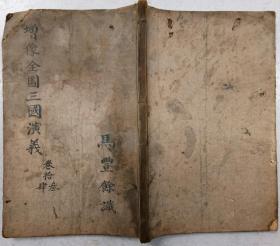 增像全圖三國演義
卷拾叁
肆
馬豐餘識